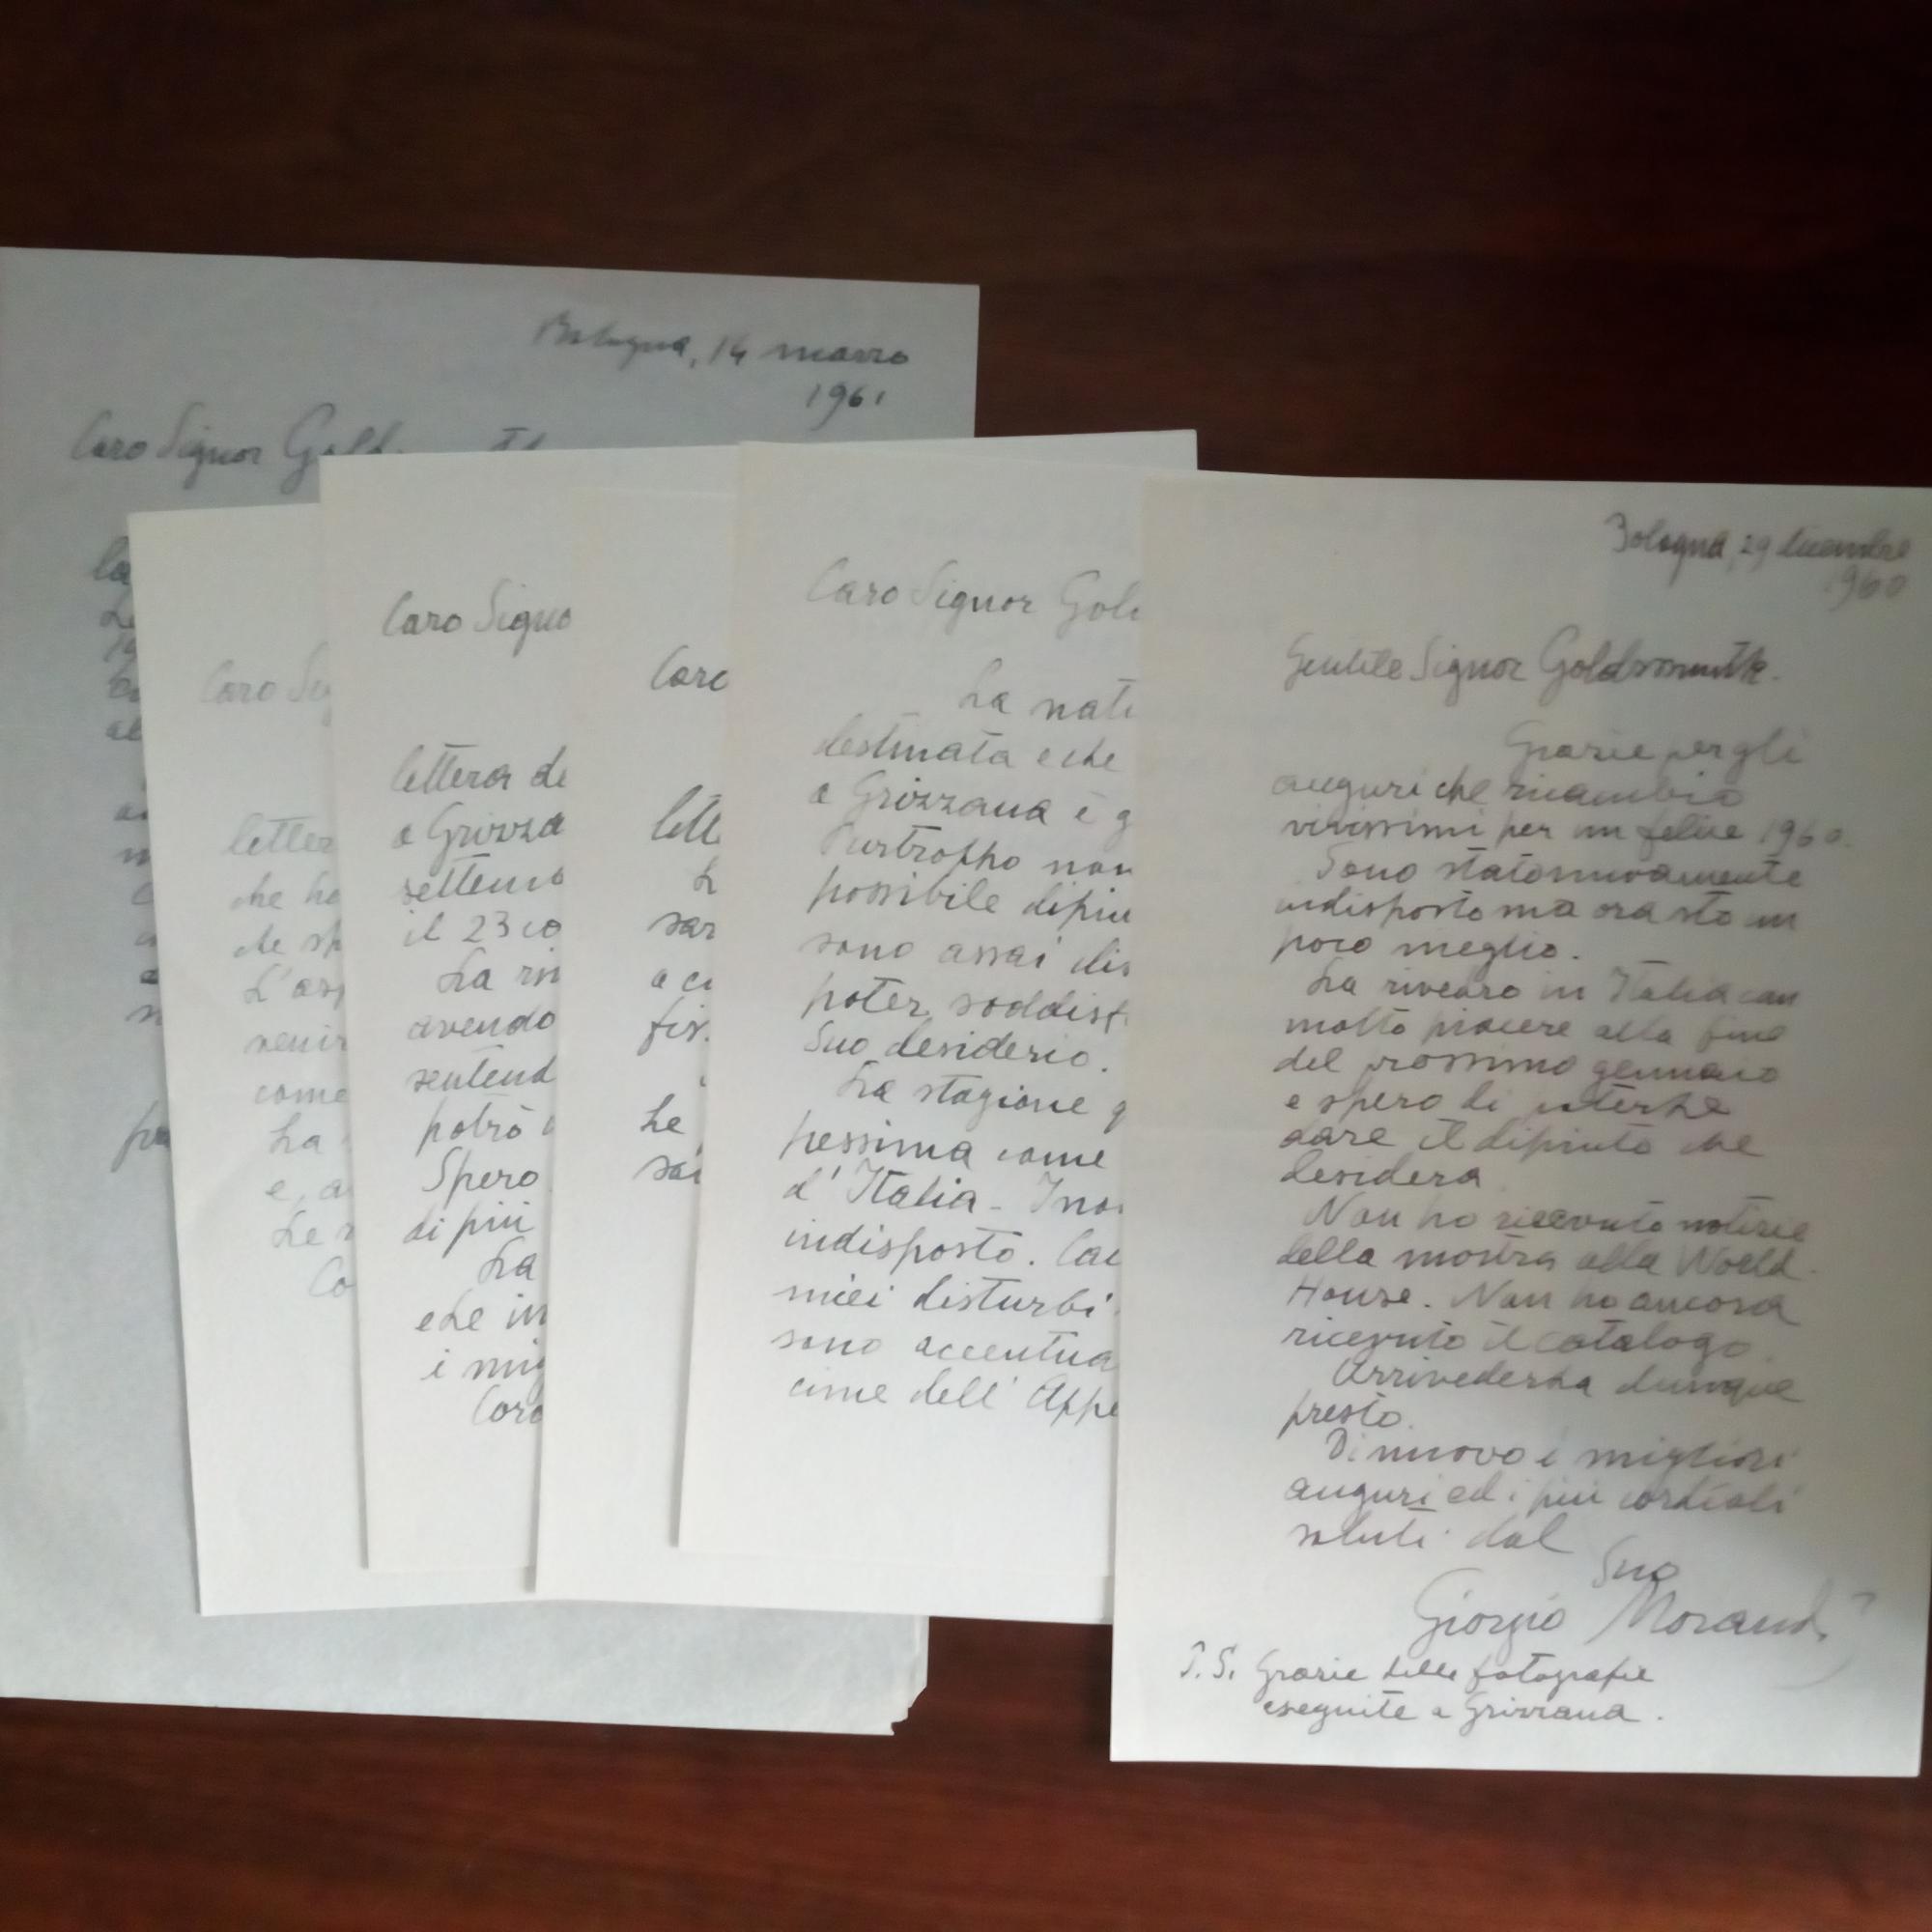 Bologna, 14 marzo
1961
Caro Signor
Caro
letter
che ha
L'as
venir
come
La
e, a
Le
Co
Caro Signo
lettera de
a Grizza
settemb
il 23 co
La ri
avendo
sentend
potrò
Spero
di più
La
che in
i mig
Cord
Caro
lett
L
sar
a ci
fis.
Le
sar
Caro Signor Gold
La natu
destinata e che
a Grizzana è g
Purtroppo non
possibile dipin
sono assai dis
poter soddisf
Suo desiderio.
La stagione q
pessima come
d'Italia - Ino
indisposto. Cau
miei disturbi
sono accentua
cime dell' Appe
Bologna, 29 dicembre
1960
Gentile Signor Goldsmith.
Grazie per gli
auguri che ricambio
vivissimi per un felice 1960.
Sono stato nuovamente
indisposto ma ora sto un
poco meglio.
La rivedrò in Italia con
molto piacere alla fine
del prossimo gennaio
e spero di poterLe
dare il dipinto che
desidera
Non ho ricevuto notizie
della mostra alla World
House. Non ho ancora
ricevuto il catalogo.
ArrivederLa dunque
presto.
Di nuovo i migliori
auguri ed i più cordiali
saluti dal
Suo
Giorgio Morandi
P.S. Grazie delle fotografie
eseguite a Grizzana.